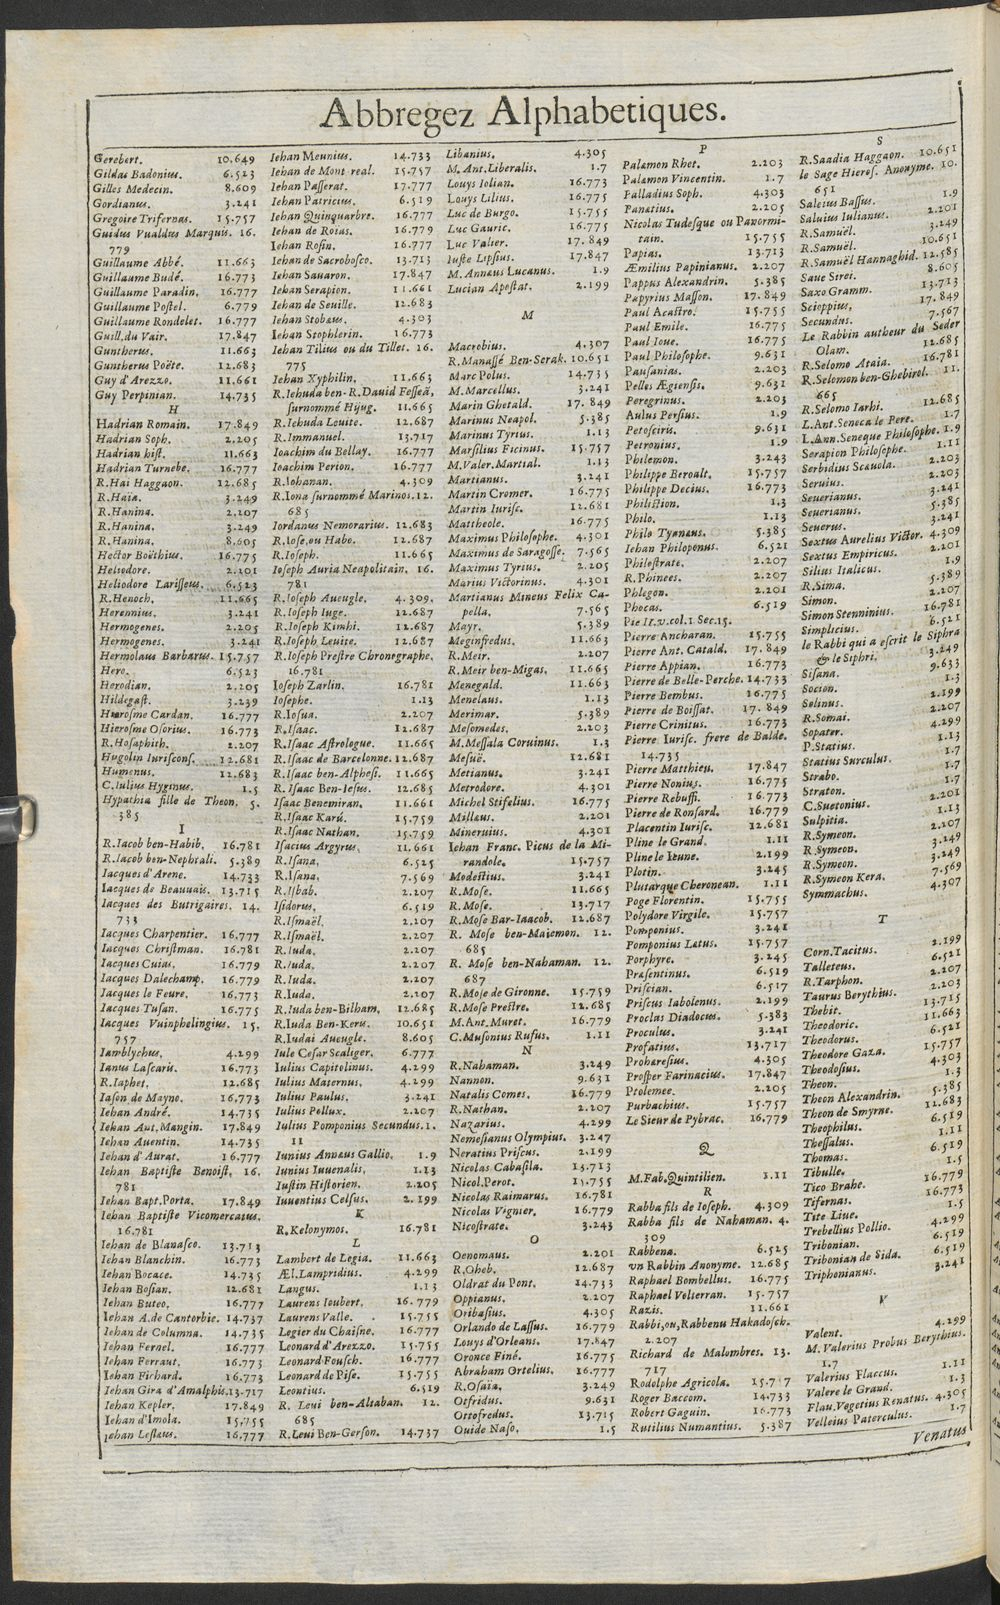 Abbregez Alphabetiques.
Gerebert. 10.649
Gildas Badonius. 6.523
Gilles Medecin. 8.609
Gordianus. 3.241
Gregoire Trifernas. 15.757
Guidus Vualdus Marquis. 16.
779
Guillaume Abbé. 11.663
Guillaume Budé. 16.773
Guillaume Paradin. 16.777
Guillaume Postel. 6.779
Guillaume Rondelet. 16.777
Guill.du Vair. 17.847
Guntherus. 11.663
Guntherus Poëte. 12.683
Guy d'Arezzo. 11.661
Guy Perpinian. 14.735
H
Hadrian Romain. 17.849
Hadrian Soph. 2.205
Hadrian hist. 11.663
Hadrian Turnebe. 16.777
R.Hai Haggaon. 12.685
R.Haia. 3.249
R.Hanina. 2.107
R.Hanina. 3.249
R.Hanina. 8.605
Hector Boëthius. 16.775
Heliodore. 2.201
Heliodore Larisseus. 6.523
R.Henoch. 11.665
Herennius. 3.241
Hermogenes. 2.205
Hermogenes. 3.241
Hermolaus Barbarus. 15.757
Hero. 6.523
Herodian. 2.205
Hildegast. 3.239
Hierosme Cardan. 16.777
Hierosme Osorius. 16.773
R.Hosaphith. 2.207
Hugolin Iurisconf. 12.681
Humenus. 12.683
C.Iulius Hyginus. 1.5
Hypathia fille de Theon. 5.
385
I
R.Iacob ben-Habib. 16.781
R.Iacob ben-Nephtali. 5.389
Iacques d'Arene. 14.733
Iacques de Beauuais. 13.715
Iacques des Butrigaires. 14.
733
Iacques Charpentier. 16.777
Iacques Christman. 16.781
Iacques Cuias. 16.779
Iacques Dalechamp. 16.779
Iacques le Feure. 16.773
Iacques Tusan. 16.775
Iacques Vuinphelingius. 15.
757
Iamblychus. 4.299
Ianus Lascaris. 16.773
R.Iaphet. 12.685
Iason de Mayno. 16.773
Iehan André. 14.735
Iehan Ant.Mangin. 17.849
Iehan Auentin. 14.735
Iehan d'Aurat. 16.777
Iehan Baptiste Benoist. 16.
781
Iehan Bapt.Porta. 17.849
Iehan Baptiste Vicomercatus.
16.781
Iehan de Blanasco. 13.713
Iehan Blanchin. 16.773
Iehan Bocace. 14.735
Iehan Bosian. 12.681
Iehan Buteo. 16.777
Iehan A.de Cantorbie. 14.737
Iehan de Columna. 14.735
Iehan Fernel. 16.777
Iehan Ferraut. 16.773
Iehan Fichard. 16.773
Iehan Gira d'Amalphis.13.717
Iehan Kepler. 17.849
Iehan d'Imola. 15.755
Iehan Leslæus. 16.777
Iehan Meunius. 14.733
Iehan de Mont real. 15.757
Iehan Passerat. 17.777
Iehan Patricius. 6.519
Iehan Quinquarbre. 16.777
Iehan de Roias. 16.779
Iehan Rosin. 16.777
Iehan de Sacrobosco. 13.713
Iehan Sauaron. 17.847
Iehan Serapion. 11.661
Iehan de Seuille. 12.683
Iehan Stobæus. 4.303
Iehan Stophlerin. 16.773
Iehan Tilius ou du Tillet. 16.
775
Iehan Xyphilin. 11.663
R.Iehuda ben-R.Dauid Fesseä,
surnommé Hijug. 11.665
R.Iehuda Leuite. 12.687
R.Immanuel. 13.717
Ioachim du Bellay. 16.777
Ioachim Perion. 16.777
R.Iohanan. 4.309
R.Iona surnommé Marinos.12.
685
Iordanus Nemorarius. 12.683
R.Iose,ou Habo. 12.687
R.Ioseph. 11.665
Ioseph Auria Neapolitain. 16.
781
R.Ioseph Aueugle. 4.309.
R.Ioseph Iuge. 12.687
R.Ioseph Kimhi. 12.687
R.Ioseph Leuite. 12.687
R.Ioseph Prestre Chronographe.
16.781
Ioseph Zarlin. 16.781
Iosephe. 1.13
R.Iosua. 2.207
R.Isaac. 12.687
R.Isaac Astrologue. 11.665
R.Isaac de Barcelonne. 12.687
R.Isaac ben-Alphesi. 11.665
R.Isaac Ben-Iesus. 12.685
Isaac Benemiran. 11.661
R.Isaac Karú. 15.759
R.Isaac Nathan. 15.759
Isacius Argyrus. 11.661
R.Isana. 6.525
R.Isana. 7.569
R.Isbab. 2.207
Isidorus. 6.519
R.Ismaël. 2.107
R.Ismaël. 2.207
R.Iuda. 2.207
R.Iuda. 2.207
R.Iuda. 2.207
R.Iuda. 2.107
R.Iuda ben-Bilham. 12.685
R.Iuda Ben-Kerus. 10.651
R.Iudai Aueugle. 8.605
Iule Cesar Scaliger. 6.777
Iulius Capitolinus. 4.299
Iulius Maternus. 4.299
Iulius Paulus. 3.241
Iulius Pollux. 2.207
Iulius Pomponius Secundus. 1.
11
Iunius Annæus Gallio. 1.9
Iunius Iuuenalis. 1.13
Iustin Historien. 2.205
Iuuentius Celsus. 2.199
K
R.Kelonymos. 16.781
L
Lambert de Legia. 11.663
Æl.Lampridius. 4.299
Langus. 1.13
Laurens Ioubert. 16.779
Laurens Valle. 15.755
Legier du Chaisne. 16.777
Leonard d'Arezzo. 15.755
Leonard Fousch. 16.777
Leonard de Pise. 15.755
Leontius. 6.519
R. Leui ben-Altaban. 12.
685
R.Leui Ben-Gerson. 14.737
Libanius. 4.305
M.Ant.Liberalis. 1.7
Louys Iolian. 16.773
Louys Lilius. 16.775
Luc de Burgo. 15.755
Luc Gauric. 16.775
Luc Valier. 17.849
Iuste Lipsius. 17.847
M.Annæus Lucanus. 1.9
Lucian Apostat. 2.199
M
Macrobius. 4.307
R.Manassé Ben-Serak. 10.651
Marc Polus. 14.735
M.Marcellus. 3.241
Marin Ghetald. 17.849
Marinus Neapol. 5.385
Marinus Tyrius. 1.13
Marsilius Ficinus. 15.757
M.Valer.Martial. 1.13
Martianus. 3.241
Martin Cromer. 16.775
Martin Iurisc. 12.681
Mattheole. 16.775
Maximus Philosophe. 4.301
Maximus de Saragosse. 7.565
Maximus Tyrius. 2.205
Marius Victorinus. 4.301
Martianus Mineus Felix Ca-
pella. 7.565
Mayr. 5.389
Meginfredus. 11.663
R.Meir. 2.207
R.Meir ben-Migas. 11.665
Menegald. 11.663
Menelaus. 1.13
Merimar. 5.389
Mesomedes. 2.203
M.Messala Coruinus. 1.3
Mesuë. 12.681
Metianus. 3.241
Metrodore. 4.301
Michel Stifelius. 16.775
Millæus. 2.201
Mineruius. 4.301
Iehan Franc. Picus de la Mi-
randole. 15.757
Modestius. 3.241
R.Mose. 11.665
R.Mose. 13.717
R.Mose Bar-Iaacob. 12.687
R. Mose ben-Maiemon. 12.
685
R. Mose ben-Nahaman. 12.
687
R.Mose de Gironne. 15.759
R.Mose Prestre. 12.685
M.Ant.Muret. 16.779
C.Musonius Rufus. 1.11
N
R.Nahaman. 3.249
Nannon. 9.631
Natalis Comes. 16.779
R.Nathan. 2.207
Nazarius. 4.299
Nemesianus Olympius. 3.247
Neratius Priscus. 2.199
Nicolas Cabasila. 13.713
Nicol.Perot. 15.755
Nicolas Raimarus. 16.781
Nicolas Vignier. 16.779
Nicostrate. 3.243
O
Oenomaus. 2.201
R.Oheb. 12.687
Oldrat du Pont. 14.733
Oppianus. 2.207
Oribasius. 4.305
Orlando de Lassus. 16.779
Louys d'Orleans. 17.847
Oronce Finé. 16.775
Abraham Ortelius. 16.777
R.Osaïa. 3.249
Otfridus. 9.631
Ottofredus. 13.715
Ouide Naso. 1.5
P
Palæmon Rhet. 2.203
Palæmon Vincentin. 1.7
Palladius Soph. 4.303
Panætius. 2.205
Nicolas Tudesque ou Panormi-
tain. 15.755
Papias. 13.713
Æmilius Papinianus. 2.207
Pappus Alexandrin. 5.385
Papyrius Masson. 17.849
Paul Acastro. 15.755
Paul Emile. 16.775
Paul Ioue. 16.775
Paul Philosophe. 9.631
Pausanias. 2.203
Pelles Ægiensis. 9.631
Peregrinus. 2.203
Aulus Persius. 1.9
Petosciris. 9.631
Petronius. 1.9
Philemon. 3.243
Philippe Beroalt. 15.757
Philippe Decius. 16.773
Philistion. 1.3
Philo. 1.13
Philo Tyaneus. 5.385
Iehan Philoponus. 6.521
Philostrate. 2.207
R.Phinees. 2.207
Phlegon. 2.201
Phocas. 6.519
Pie II.v.col.1 Sec.15.
Pierre Ancharan. 15.755
Pierre Ant. Catald. 17.849
Pierre Appian. 16.773
Pierre de Belle-Perche. 14.733
Pierre Bembus. 16.775
Pierre de Boissat. 17.849
Pierre Crinitus. 16.773
Pierre Iurisc. frere de Balde.
14.735
Pierre Matthieu. 17.847
Pierre Nonius. 16.775
Pierre Rebuffi. 16.773
Pierre de Ronsard. 16.779
Placentin Iurisc. 12.681
Pline le Grand. 1.11
Pline le Ieune. 2.199
Plotin. 3.245
Plutarque Cheronean. 1.11
Poge Florentin. 15.755
Polydore Virgile. 15.757
Pomponius. 3.241
Pomponius Lætus. 15.757
Porphyre. 3.245
Præsentinus. 6.519
Priscian. 6.517
Priscus Iabolenus. 2.199
Proclus Diadocus. 5.383
Proculus. 3.241
Profatius. 13.717
Prohæresius. 4.305
Prosper Farinacius. 17.847
Ptolemee. 2.205
Purbachius. 15.757
Le Sieur de Pybrac. 16.779
Q
M.Fab.Quintilien. 1.11
R
Rabba fils de Ioseph. 4.309
Rabba fils de Nahaman. 4.
309
Rabbena. 6.525
vn Rabbin Anonyme. 12.685
Raphael Bombellus. 16.775
Raphael Volterran. 15.757
Razis. 11.661
Rabbi,ou,Rabbenu Hakadosch.
2.207
Richard de Malombres. 13.
717
Rodolphe Agricola. 15.717
Roger Baccom. 14.733
Robert Gaguin. 16.773
Rutilius Numantius. 5.387
S
R.Saadia Haggaon. 10.651
le Sage Hieros. Anonyme. 10.
651
Saleius Bassus. 1.9
Saluius Iulianus. 2.201
R.Samuël. 3.249
R.Samuël. 10.651
R.Samuël Hannaghid. 12.585
Saue Strei. 8.605
Saxo Gramm. 13.713
Scioppius. 17.849
Secundus. 7.567
Le Rabbin autheur du Seder
Olam. 12.685
R.Selomo Ataia. 16.781
R.Selomon ben-Ghebirol. 11.
665
R.Selomo Iarhi. 12.685
L.Ant.Seneca le Pere. 1.7
L.Ann.Seneque Philosophe. 1.9
Serapion Philosophe. 1.11
Serbidius Scæuola. 2.203
Seruius. 2.203
Seuerianus. 3.241
Seuerianus. 5.385
Seuerus. 3.241
Sextus Aurelius Victor. 4.309
Sextus Empiricus. 2.201
Silius Italicus. 1.9
R.Sima. 5.389
Simon. 2.107
Simon Stenninius. 16.781
Simplicius. 6.521
le Rabbi qui a escrit le Siphra
& le Siphri. 3.249
Sisana. 9.633
Socion. 1.3
Solinus. 2.199
R.Somai. 2.207
Sopater. 4.299
P.Statius. 1.13
Statius Surculus. 1.7
Strabo. 1.7
Straton. 1.7
C.Suetonius. 2.201
Sulpitia. 1.13
R.Symeon. 2.107
R.Symeon. 3.249
R.Symeon. 3.249
R.Symeon Kera. 7.569
Symmachus. 4.307
T
Corn.Tacitus. 2.199
Talleteus. 6.521
R.Tarphon. 2.207
Taurus Berythius. 2.203
Thebit. 13.715
Theodoric. 11.663
Theodorus. 6.521
Theodore Gaza. 15.757
Theodosius. 4.303
Theon. 1.3
Theon Alexandrin. 5.385
Theon de Smyrne. 11.683
Theophilus. 6.519
Thessalus. 1.11
Thomas. 6.519
Tibulle. 1.5
Tico Brahe. 16.779
Tifernas. 16.773
Tite Liue. 1.5
Trebellius Pollio. 4.299
Tribonian. 6.519
Tribonian de Sida. 6.519
Triphonianus. 3.241
V
Valent. 4.299
M.Valerius Probus Berythius.
1.7
Valerius Flaccus. 1.11
Valere le Grand. 1.3
Flau.Vegetius Renatus. 4.305
Velleius Paterculus. 1.7
Venatus